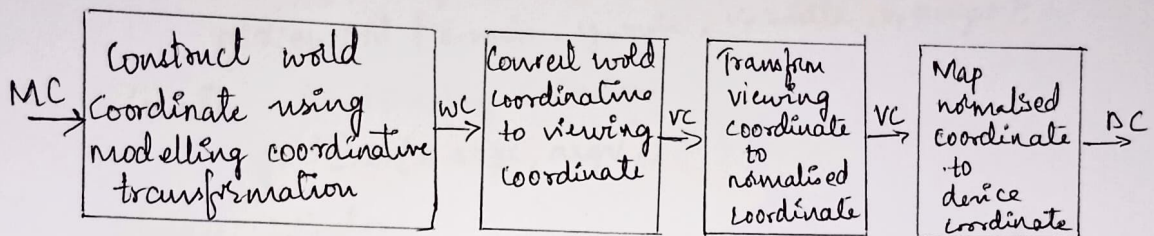 MC
Construct world
Coordinate using
modelling coordinative
transformation
WC
Convert world
coordinative
to viewing
coordinate
VC
Transform
viewing
coordinate
to
normalised
coordinate
VC
Map
normalised
coordinate
to
device
coordinate
DC